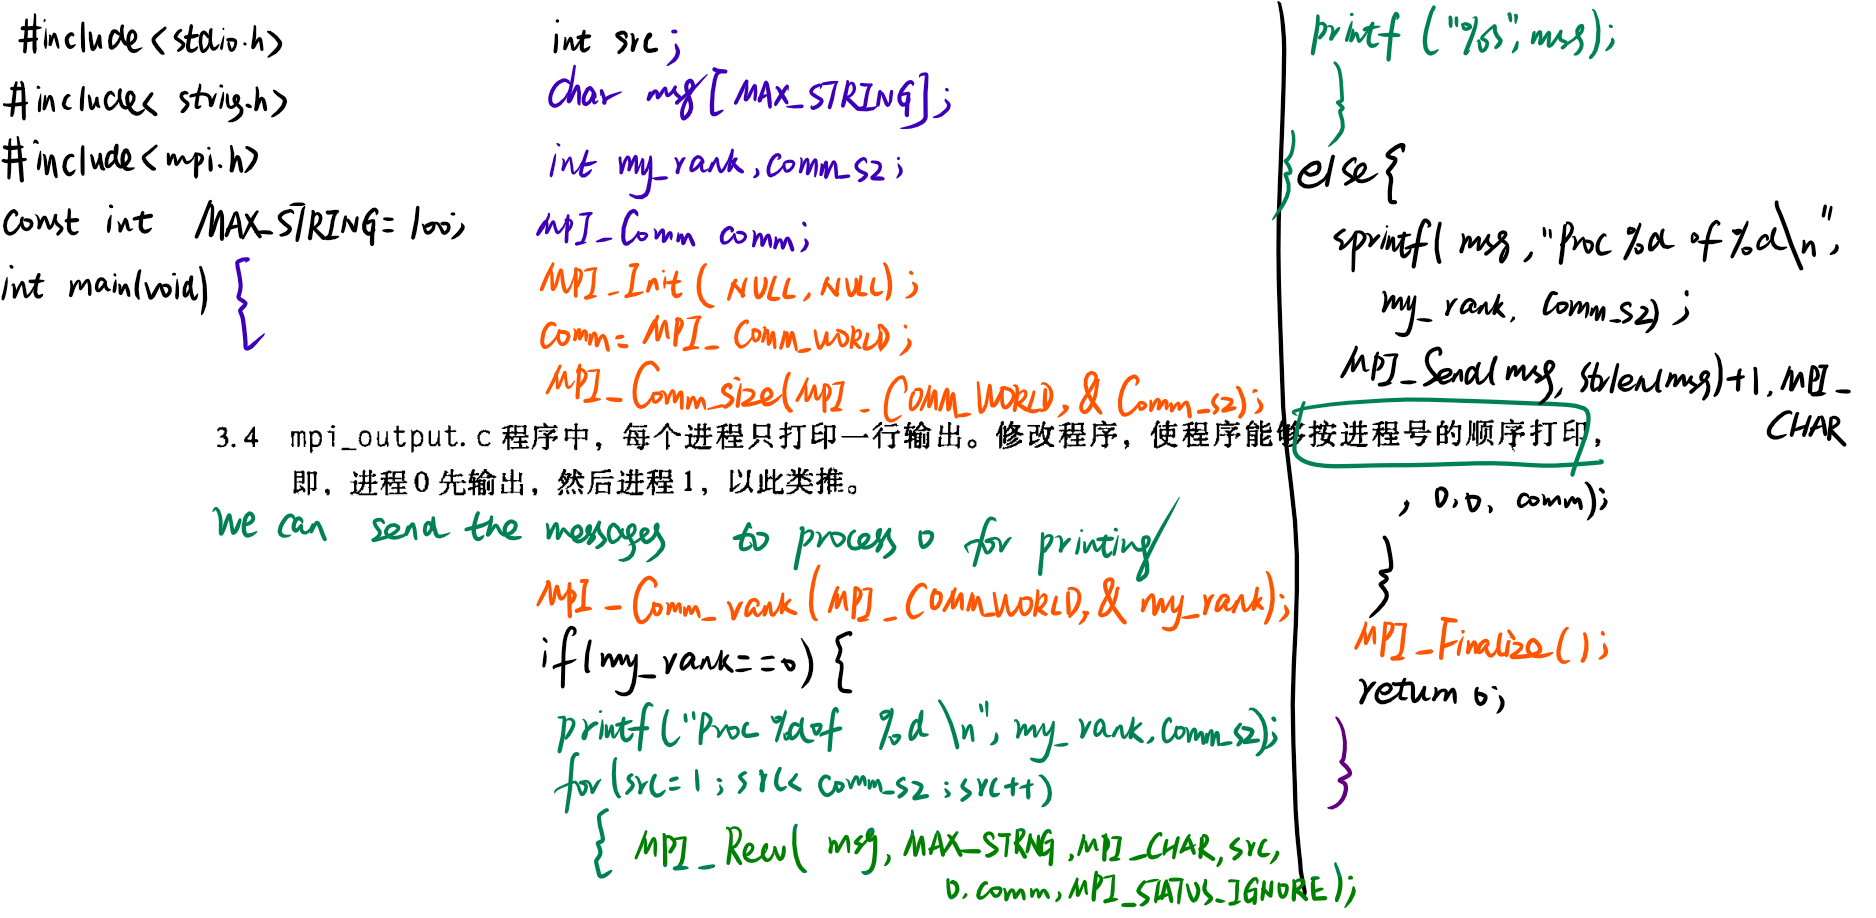 #include<stdio.h>
#include<string.h>
#include<mpi.h>
const int MAX_STRING=100;
int main(void) {
int src;
char msg[MAX_STRING];
int my_rank,comm_sz;
MPI_Comm comm;
MPI_Init(NULL,NULL);
comm=MPI_COMM_WORLD;
MPI_Comm_size(MPI_COMM_WORLD,&Comm_sz);
3.4 mpi_output.c 程序中，每个进程只打印一行输出。修改程序，使程序能够按进程号的顺序打印，
即，进程0先输出，然后进程1，以此类推。
we can send the messages to process 0 for printing
MPI_Comm_rank(MPI_COMM_WORLD,&my_rank);
if(my_rank==0) {
printf("Proc %d of %d \n",my_rank,comm_sz);
for(src=1;src<comm_sz;src++)
{ MPI_Recv(msg,MAX_STRNG,MPI_CHAR,src,
0,comm,MPI_STATUS_IGNORE);
printf("%s",msg);
}
}else{
sprintf(msg,"Proc %d of %d\n",
my_rank,comm_sz);
MPI_Send(msg,strlen(msg)+1,MPI_
CHAR
,0,0,comm);
}
MPI_Finalize();
return 0;
}